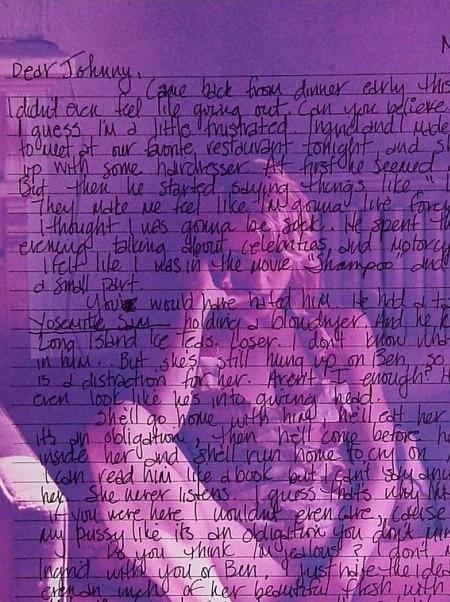 N
Dear Johnny,
Came back from dinner early this
I didn't even feel like going out. Can you believe
I guess I'm a little frustrated. Ingrid and I made
to meet at our favorite restaurant tonight, and sh
up with some hairdresser. At first he seemed
But then he started saying things like "I
They make me feel like I'm gonna live forev
I thought I was gonna be sick. He spent the
evening talking about celebrities and motorcy
I felt like I was in the movie "Shampoo" and
a small part.
You would have hated him. He had a ta
Yosemite Sam holding a blowdryer. And he k
Long Island Ice Teas. Loser. I don't know wha
in him... But she's still hung up on Ben, so
is a distraction for her. Aren't I enough? H
even look like he's into giving head.
She'll go home with him, he'll eat her
its an obligation, then he'll come before he
inside her and she'll run home to cry on
I can read him like a book but I can't say any
her. She never listens. I guess that's why
if you were here I wouldn't even care, cause
my pussy like its an obligation you don't
Do you think I'm jealous? I don't m
Ingrid with you or Ben, I just hate the idea
even an inch of her beautiful flesh with